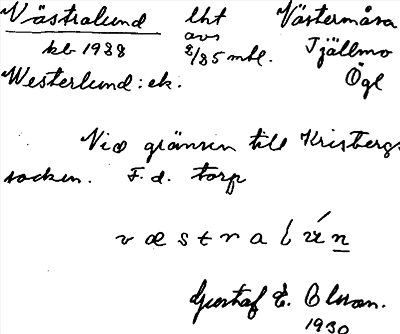 Västralund lht Västermåsa
kb 1988 avs Tjällmo
2/85 mtl. Ögl
Westerlund: ek.
Vid gränsen till Kristbergs
socken. F. d. torp
v æ s t r a l ú n
Gustaf E. Olsson.
1930